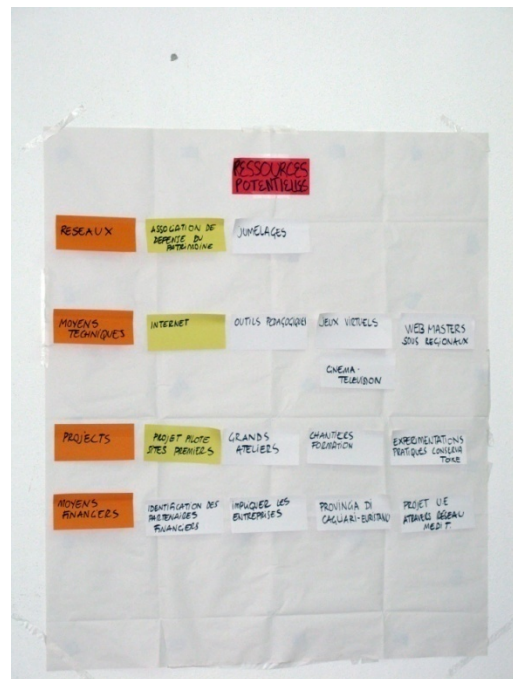 RESSOURCES
POTENTIELLES
RESEAUX
ASSOCIATION DE
DEFENSE DU
PATRIMOINE
JUMELAGES
MOYENS
TECHNIQUES
INTERNET
OUTILS PEDAGOGIQUES
JEUX VIRTUELS
WEB MASTERS
SOUS REGIONAUX
CINEMA-
TELEVISION
PROJECTS
PROJET PILOTE
SITES PREMIERS
GRANDS
ATELIERS
CHANTIERS
FORMATION
EXPERIMENTATIONS
PRATIQUES CONSERVA
TOIRE
MOYENS
FINANCERS
IDENTIFICATION DES
PARTENAIRES
FINANCIERS
IMPLIQUER LES
ENTREPRISES
PROVINCIA DI
CAGLIARI-
PROJET UE
ATRAVERS RESEAU
MEDIT.